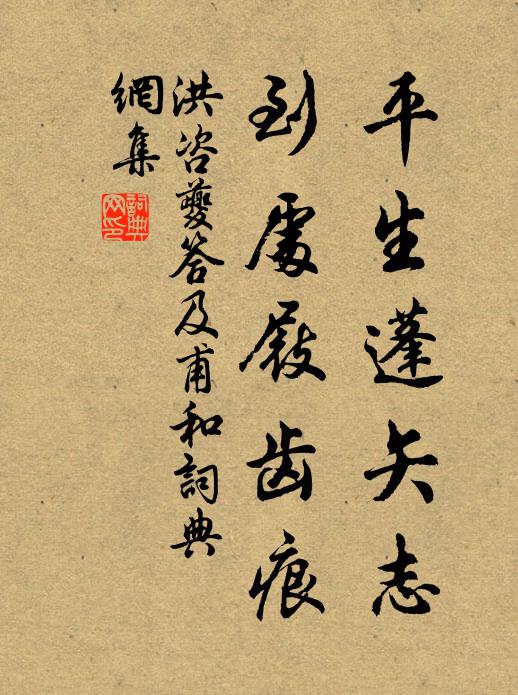 平生蓬矢志
到處屐齒痕
洪咨夔答及甫和詞典
網集
詞典
网印